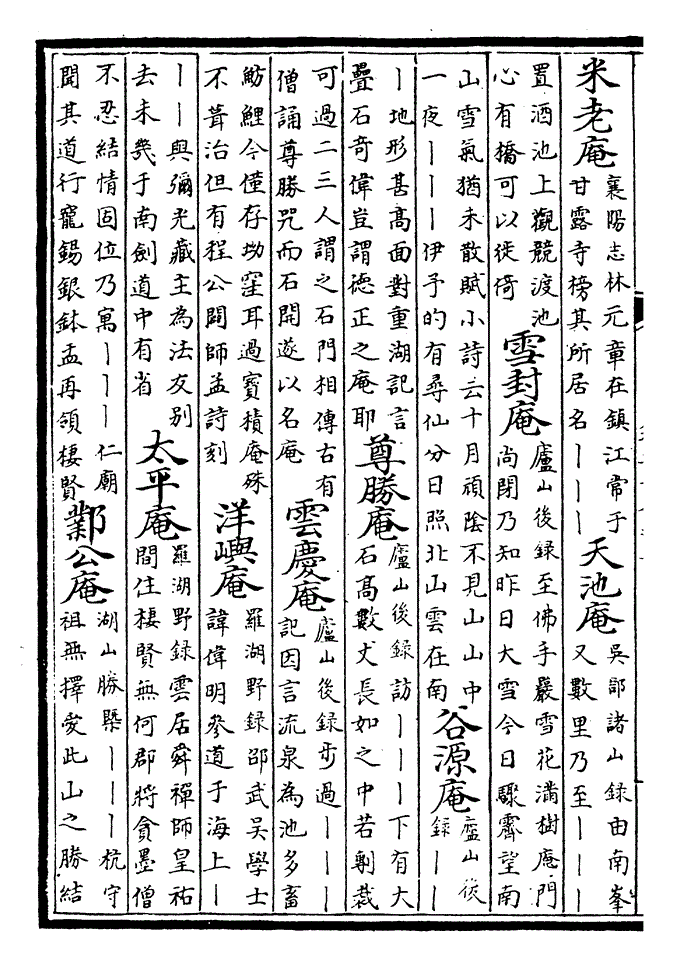 米老庵
襄陽志林元章在鎮江常于
甘露寺榜其所居名丨丨丨
天池庵
吳郡諸山録由南峯
又數里乃至丨丨丨
置酒池上觀競渡池
心有橋可以徙倚
雪封庵
廬山後録至佛手巖雪花滿樹庵門
尚閉乃知昨日大雪今日驟霽望南
山雪氣猶未散賦小詩云十月頑陰不見山山中
一夜丨丨丨伊予的有尋仙分日照北山雲在南
谷源庵
廬山後
録丨丨
丨地形甚髙面對重湖記言
疊石竒偉豈謂德正之庵耶
尊勝庵
廬山後録訪丨丨丨下有大
石髙數丈長如之中若剸裁
可過二三人謂之石門相傳古有
僧誦尊勝咒而石開遂以名庵
雲慶庵
廬山後録步過丨丨丨
記因言流泉為池多畜
魴鯉今僅存坳窪耳過寳積庵殊
不葺治但有程公闢師孟詩刻
洋嶼庵
羅湖野録邵武吳學士
諱偉明參道于海上丨
丨丨與彌光藏主為法友别
去未幾于南劍道中有省
太平庵
羅湖野録雲居舜禪師皇祐
間住棲賢無何郡將貪墨僧
不忍結情固位乃寓丨丨丨仁廟
聞其道行寵錫銀鉢盂再領棲賢
鄴公庵
湖山勝槩丨丨丨杭守
祖無擇愛此山之勝結